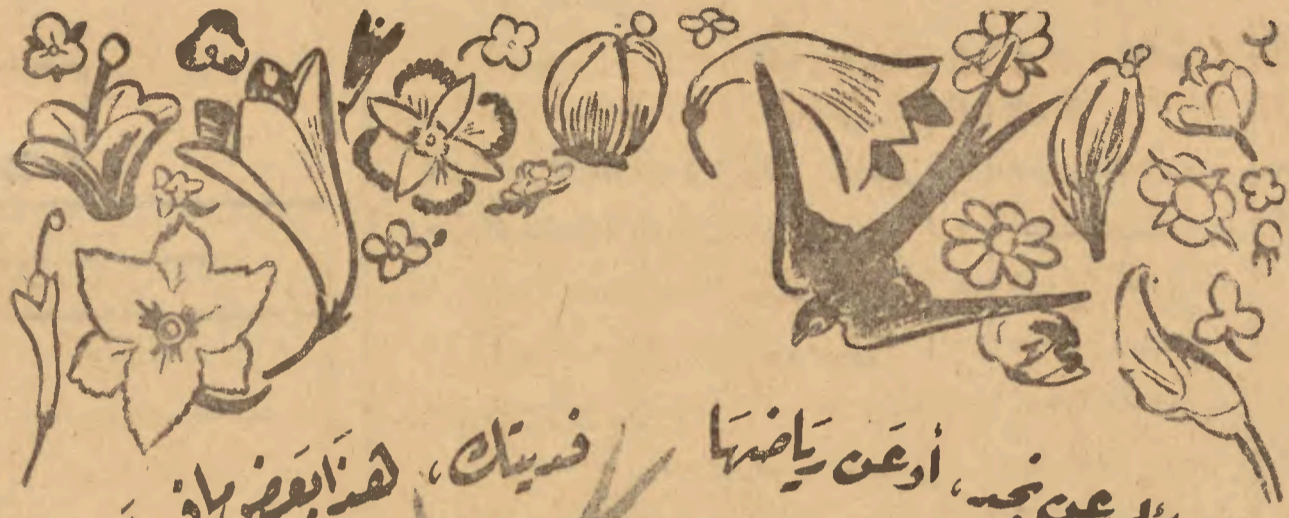 عن نجد، أو عَن رَيَاضهَا
فديتك، هذا بَعض ما